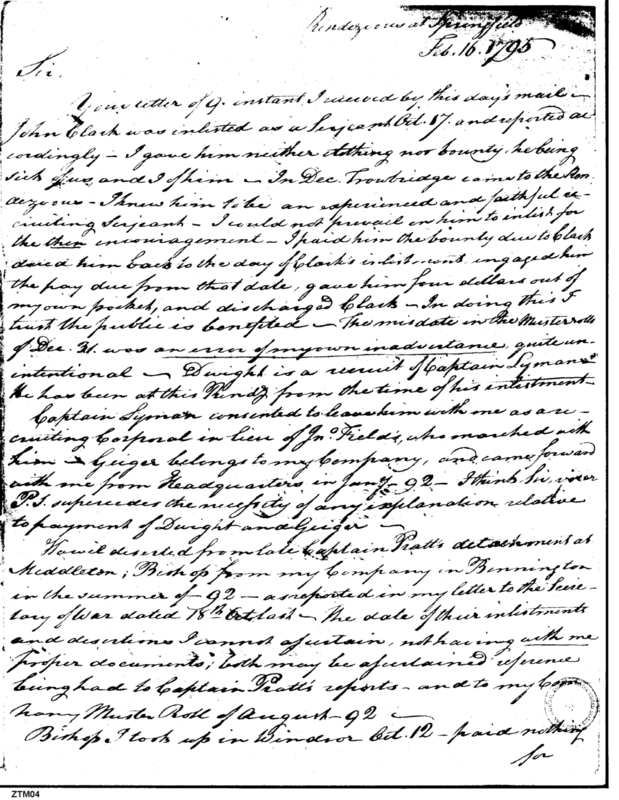 Rendezvous at Springfield
Feb. 16. 1795
Sir.
Your letter of 9. instant I received by this day's mail –
John Clark was inlisted as a Serjeant Oct. 17. and reported ac
cordingly – I gave him neither clothing nor bounty, he being
sick of us, and I of him – In Dec. Trowbridge came to the Ren
dezvous – I knew him to be an experienced and faithful re-
cruiting Serjeant – I could not prevail on him to inlist for
the then encouragement – I paid him the bounty due to Clark
dated him back to the day of Clark's inlistment, engaged him
the pay due from that date, gave him four dollars out of
my own pocket, and discharged Clark – In doing this I
trust the public is benefited – The misdate in the Muster rolls
of Dec. 31. was an error of my own inadvertance, quite un-
intentional – Dwight is a recruit of Captain Lyman's
He has been at this Rendz. from the time of his inlistment –
Captain Lyman consented to leave him with me as a re-
cruiting Corporal in lieu of Jno. Fields, who marched with
him – Geiger belongs to my Company, and came forward
with me from Headquarters in Jany – 92 – I think, Sir, your
P.S. supercedes the necessity of any explanation relative
to payment of Dwight and Geiger –
deserted from late Captain Pratt's detachment at
Middleton; Bishop from my Company in Bennington
in the summer of – 92 – as reported in my letter to the Secre-
tary of War dated 18th Oct. last – The date of their inlistments
and desertions I cannot ascertain, not having with me
proper documents; both may be ascertained reference
being had to Captain Pratt's reports – and to my Com
pany Muster Roll of August – 92 –
Bishop I took up in Windsor Oct. 12 – paid nothing
for
ZTM04